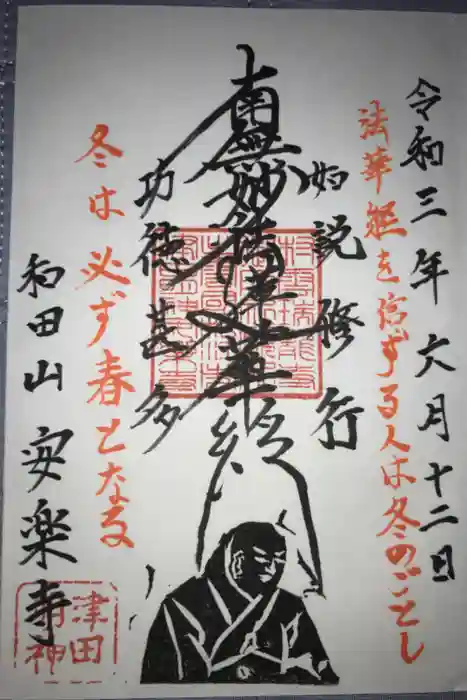 令和三年六月十二日
法華経を信ずる人は冬のごとし
如説修行
南無妙法蓮華経
功徳甚多
冬は必ず春となる
和田山 安楽寺
津田
神